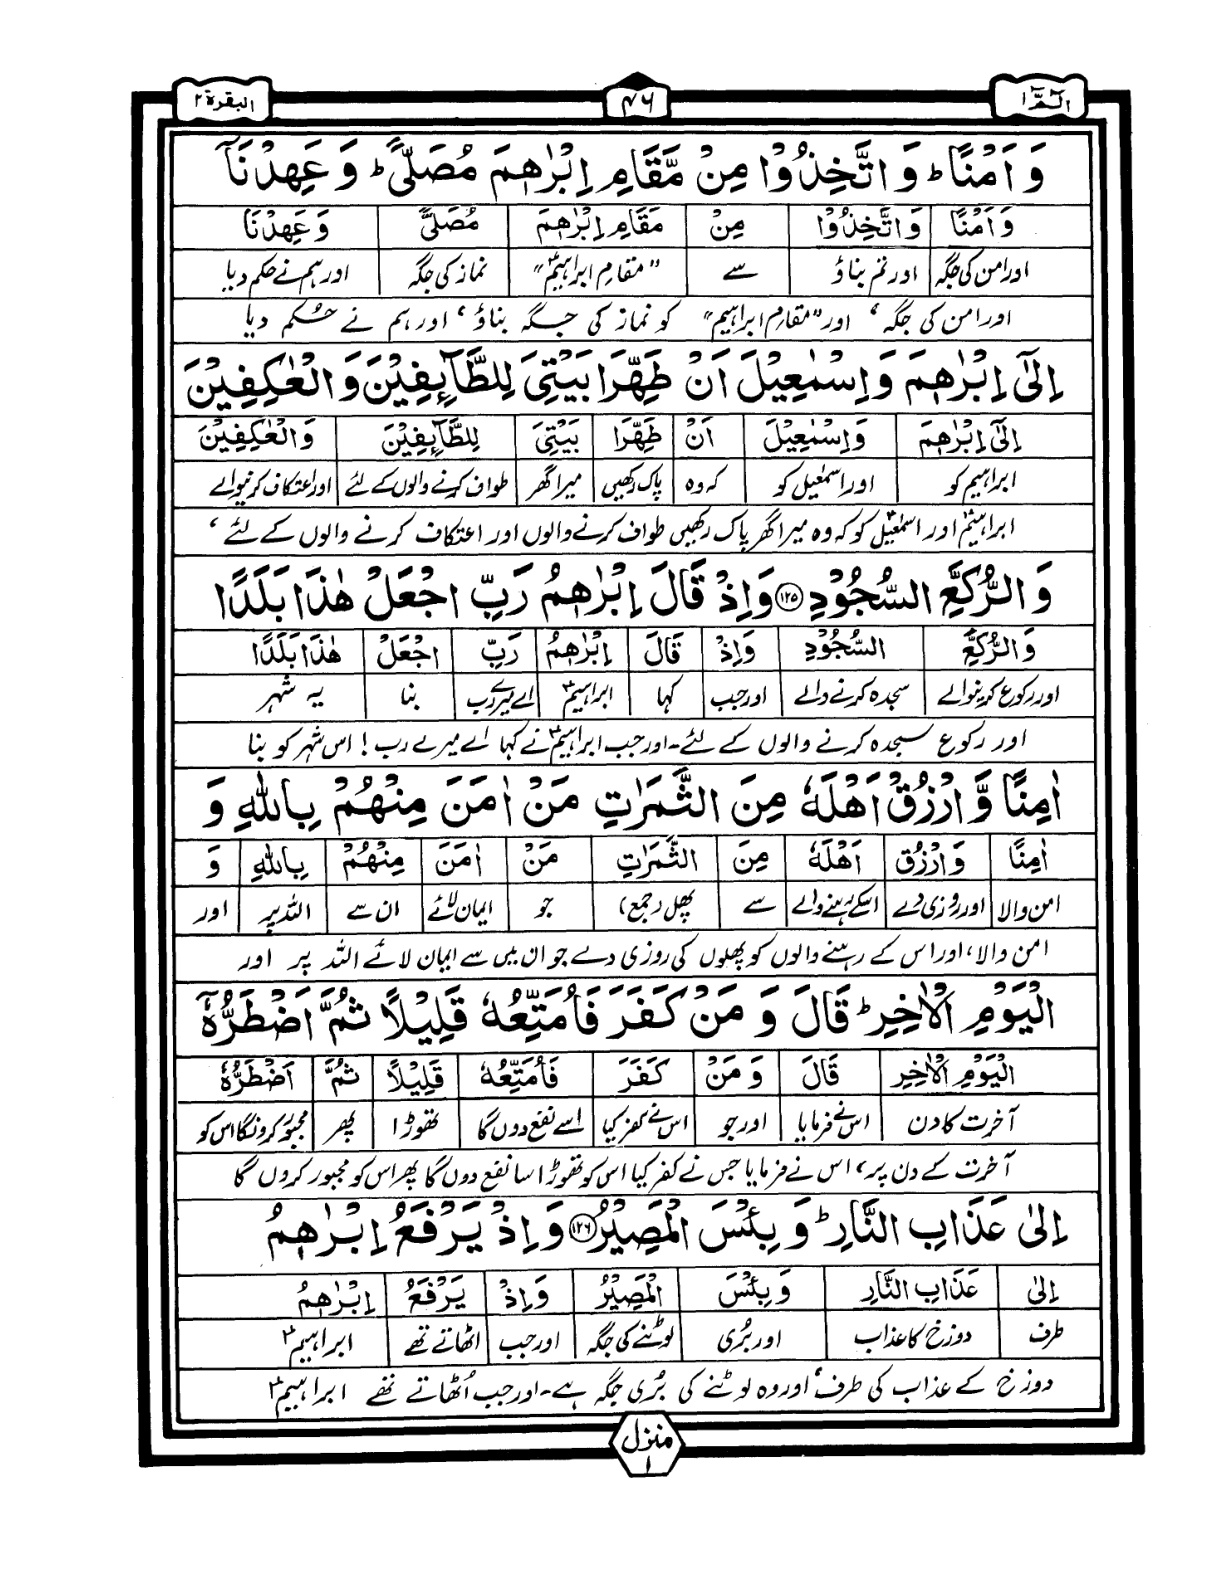 الٓمّٓ ۱ ۴۶ البقرة ۲
وَ اَمْنًا ؕ وَ اتَّخِذُوْا مِنْ مَّقَامِ اِبْرٰهٖمَ مُصَلًّی ؕ وَ عَهِدْنَاۤ
وَ اَمْنًا وَ اتَّخِذُوْا مِنْ مَقَامِ اِبْرٰهٖمَ مُصَلًّی وَ عَهِدْنَا
اور امن کی جگہ اور تم بناؤ سے "مقامِ ابراہیمؑ" نماز کی جگہ اور ہم نے حکم دیا
اور امن کی جگہ، اور "مقام ابراہیم" کو نماز کی جگہ بناؤ، اور ہم نے حُکم دیا
اِلٰۤی اِبْرٰهٖمَ وَ اِسْمٰعِیْلَ اَنْ طَهِّرَا بَیْتِیَ لِلطَّآىِٕفِیْنَ وَ الْعٰكِفِیْنَ
اِلٰۤی اِبْرٰهٖمَ وَ اِسْمٰعِیْلَ اَنْ طَهِّرَا بَیْتِیَ لِلطَّآىِٕفِیْنَ وَ الْعٰكِفِیْنَ
ابراہیم کو اور اسمٰعیل کو کہ وہ پاک رکھیں میرا گھر طواف کرنے والوں کے لئے اور اعتکاف کرنیوالے
ابراہیمؑ اور اسمٰعیلؑ کو کہ وہ میرا گھر پاک رکھیں طواف کرنے والوں اور اعتکاف کرنے والوں کے لئے،
وَ الرُّكَّعِ السُّجُوْدِ ۱۲۵ وَ اِذْ قَالَ اِبْرٰهٖمُ رَبِّ اجْعَلْ هٰذَا بَلَدًا
وَ الرُّكَّعِ السُّجُوْدِ وَ اِذْ قَالَ اِبْرٰهٖمُ رَبِّ اجْعَلْ هٰذَا بَلَدًا
اور رکوع کرنیوالے سجدہ کرنے والے اور جب کہا ابراہیمؑ اے میرے رب بنا یہ شہر
اور رکوع سجدہ کرنے والوں کے لئے۔ اور جب ابراہیمؑ نے کہا اے میرے رب! اس شہر کو بنا
اٰمِنًا وَّ ارْزُقْ اَهْلَهٗ مِنَ الثَّمَرٰتِ مَنْ اٰمَنَ مِنْهُمْ بِاللّٰهِ وَ
اٰمِنًا وَ ارْزُقْ اَهْلَهٗ مِنَ الثَّمَرٰتِ مَنْ اٰمَنَ مِنْهُمْ بِاللّٰهِ وَ
امن والا اور روزی دے اسکے رہنے والے سے پھل (جمع) جو ایمان لائے ان سے اللہ پر اور
امن والا، اور اس کے رہنے والوں کو پھلوں کی روزی دے جو ان میں سے ایمان لائے اللہ پر اور
الْیَوْمِ الْاٰخِرِ ؕ قَالَ وَ مَنْ كَفَرَ فَاُمَتِّعُهٗ قَلِیْلًا ثُمَّ اَضْطَرُّهٗۤ
الْیَوْمِ الْاٰخِرِ قَالَ وَ مَنْ كَفَرَ فَاُمَتِّعُهٗ قَلِیْلًا ثُمَّ اَضْطَرُّهٗ
آخرت کا دن اس نے فرمایا اور جو اس نے کفر کیا اسے نفع دوں گا تھوڑا پھر مجبور کرونگا اس کو
آخرت کے دن پر، اس نے فرمایا جس نے کفر کیا اس کو تھوڑا سا نفع دوں گا پھر اس کو مجبور کروں گا
اِلٰی عَذَابِ النَّارِ ؕ وَ بِئْسَ الْمَصِیْرُ ۱۲۶ وَ اِذْ یَرْفَعُ اِبْرٰهٖمُ
اِلٰی عَذَابِ النَّارِ وَ بِئْسَ الْمَصِیْرُ وَ اِذْ یَرْفَعُ اِبْرٰهٖمُ
طرف دوزخ کا عذاب اور بُری لوٹنے کی جگہ اور جب اٹھاتے تھے ابراہیمؑ
دوزخ کے عذاب کی طرف، اور وہ لوٹنے کی بُری جگہ ہے۔ اور جب اُٹھاتے تھے ابراہیمؑ
منزل ۱